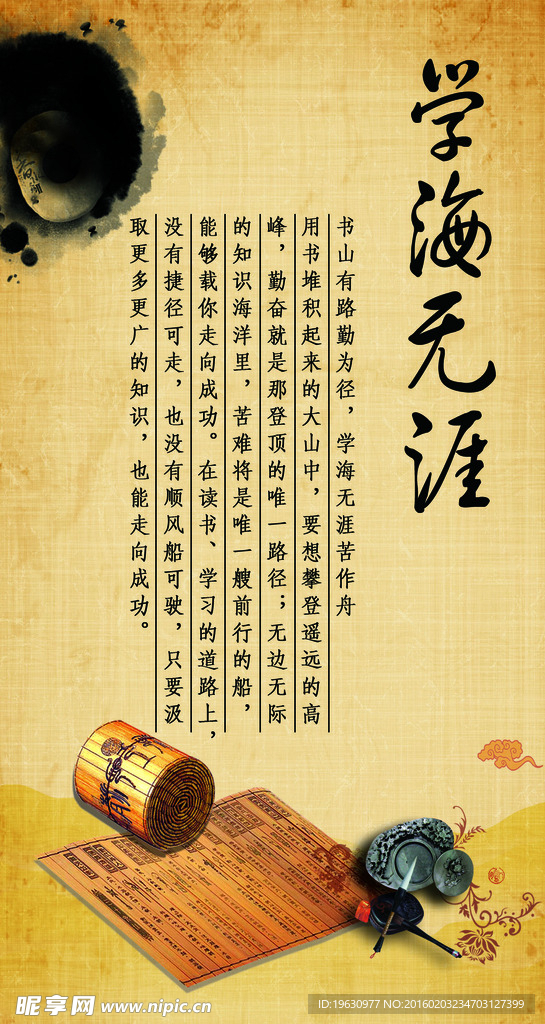 学海无涯
书山有路勤为径，学海无涯苦作舟
用书堆积起来的大山中，要想攀登遥远的高
峰，勤奋就是那登顶的唯一路径；无边无际
的知识海洋里，苦难将是唯一艘前行的船，
能够载你走向成功。在读书、学习的道路上，
没有捷径可走，也没有顺风船可驶，只要汲
取更多更广的知识，也能走向成功。
昵享网 www.nipic.cn
ID:19630977 NO:20160203234703127399